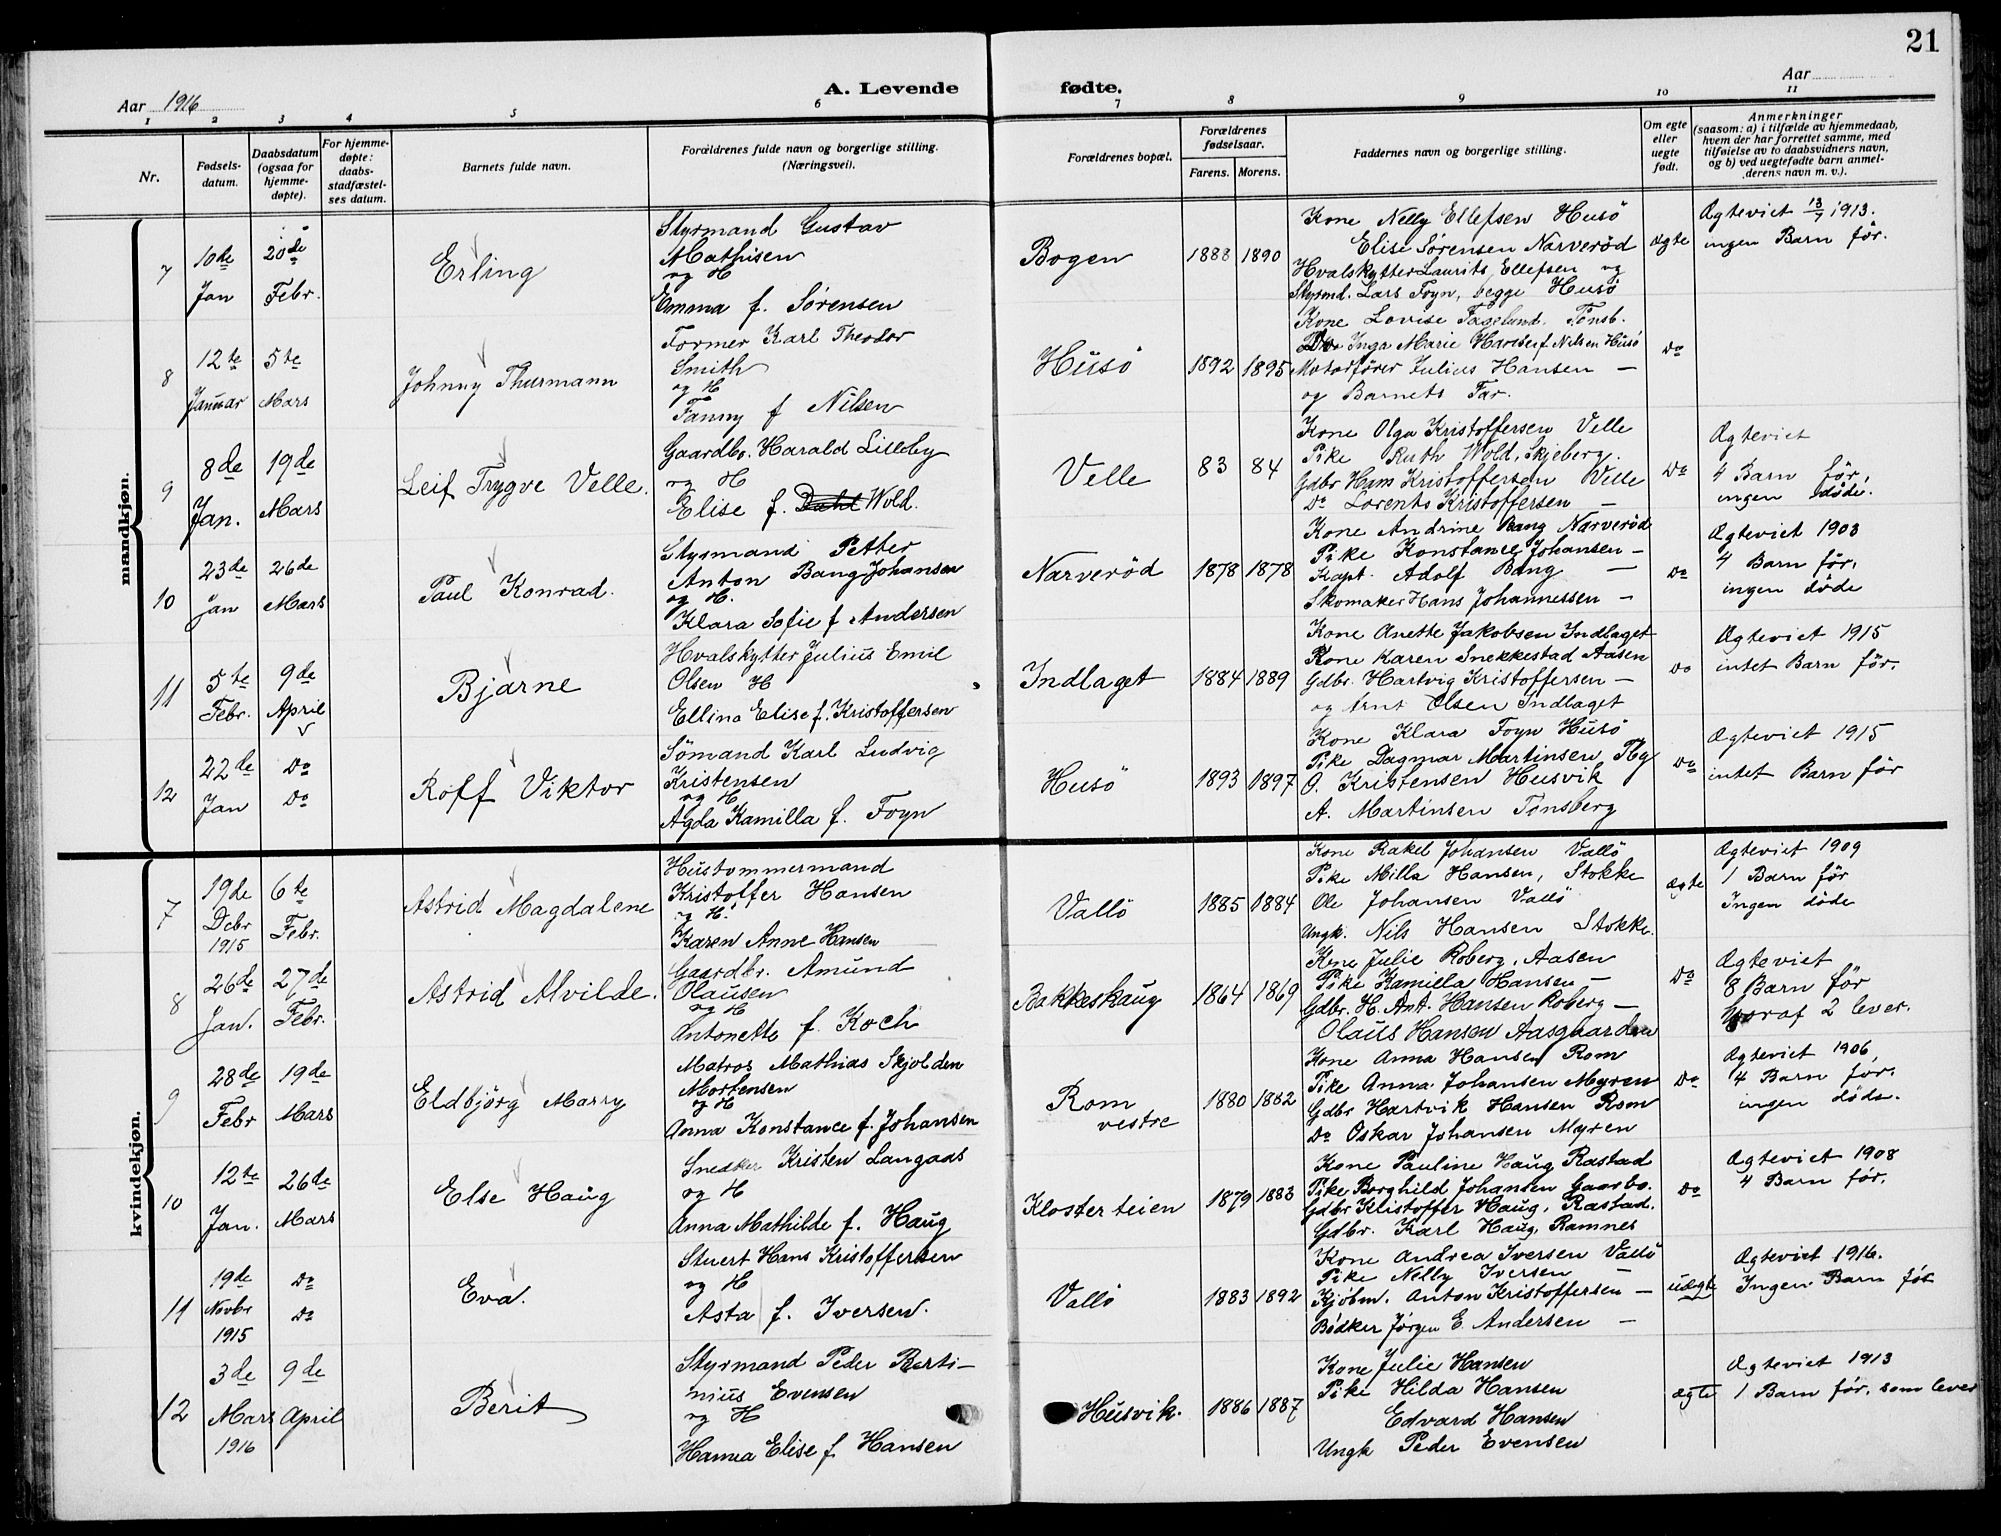 21
Aar 1916
A. Levende fødte.
Aar
1 2 3 4 5 6 7 8 9 10 11
Nr.
Fødsels-
datum.
Daabsdatum
(ogsaa for
hjemme-
døpte).
For hjemme-
døpte:
daabs-
stadfæstel-
ses datum.
Barnets fulde navn.
Forældrenes fulde navn og borgerlige stilling.
(Næringsvei).
Forældrenes bopæl.
Forældrenes
fødselsaar.
Farens. Morens.
Faddernes navn og borgerlige stilling.
Om egte
eller
uegte
født.
Anmerkninger
(saasom: a) i tilfælde av hjemmedaab,
hvem der har forrettet samme, med
tilføielse av to daabsvidners navn,
og b) ved uegtefødte barn anmel-
derens navn m. v.).
mandkjøn.
7
10de
Jan
20de
Febr.
Erling
Styrmand Gustav
Mathisen
og H
Emma f. Sørensen
Bogen
1888 1890
Kone Nelly Ellefsen Husö
Elise Sørensen Narveröd
Hvalskytter Laurits Ellefsen og
Styrmd. Lars Foyn, begge Husö
ægte
Ægteviet 13/7 1913.
ingen Barn för.
8
12te
Januar
5te
Mars
Johnny Thurmann
Former Karl Theodor
Smith
og H
Fanny f Nilsen
Husö
1892 1895
Kone Lovise Fagelund. Tønsb.
Do Inga Marie Hansen f Nilsen Husö
Motorfører Julius Hansen —
og Barnets Far.
Do
9
8de
Jan.
19de
Mars
Leif Trygve Velle.
Gaardbr. Harald Lilleby
og H
Elise f. Dahl Wold.
Velle
83 84
Kone Olga Kristoffersen Velle
Pike Ruth Wold, Skjeberg.
Gdbr Hem Kristoffersen Velle
Do Lorents Kristoffersen —
Do
Ægteviet
4 Barn för,
ingen döde.
10
23de
Jan
26de
Mars
Paul Konrad.
Styrmand Petter
Anton Bang Johansen
og H.
Klara Sofie f Andersen
Narveröd
1878 1878
Kone Andrine Bang Narveröd
Pike Konstance Johansen —
Kapt. Adolf Bang —
Skomaker Hans Johannessen —
Do
Ægteviet 1903
4 Barn för,
ingen döde
11
5te
Febr.
9de
April
Bjarne
Hvalskytter Julius Emil
Olsen H
Ellina Elise f. Kristoffersen
Indlaget
1884 1889
Kone Anette Jakobsen Indlaget
Kone Karen Snekkestad Aasen
Gdbr. Hartvig Kristoffersen —
og Arnt Olsen Indlaget
Do
Ægteviet 1915
intet Barn för.
12
22de
Jan
Do
Do
Rolf Viktor
Sömand Karl Ludvig
Kristensen
og H
Agda Kamilla f. Foyn
Husö
1893 1897
Kone Klara Foyn Husö
Pike Dagmar Martinsen Tbg
O. Kristensen Husvik
A. Martinsen Tønsberg
Do
Ægteviet 1915
intet Barn för
kvindekjøn.
7
19de
Debr
1915
6te
Febr.
Astrid Magdalene
Hustømmermand
Kristoffer Hansen
og H.
Karen Anne Hansen
Vallö
1885 1884
Kone Rakel Johansen Vallö
Pike Milla Hansen, Stokke
Ole Johansen Vallö
Ungk. Nils Hansen Stokke.
ægte
Ægteviet 1909
1 Barn för
Ingen döde
8
26de
Jan.
27de
Febr.
Astrid Alvilde.
Gaardbr. Amund
Olausen
og H
Antonette f. Koch
Bakkeskaug
1864 1869
Kone Julie Roberg, Aasen
Pike Kamilla Hansen —
Gdbr. H. Ant. Hansen Roberg —
Olaus Hansen Aasgaarden
Do
Ægteviet
8 Barn för
hvoraf 2 lever.
9
28de
Febr
19de
Mars
Eldbjörg Marry
Matros Mathias Skjolden
Mortensen
og H
Anna Konstance f. Johansen
Rom
vestre
1880 1882
Kone Anna Hansen Rom
Pike Anna Johansen Myren
Gdbr Hartvik Hansen Rom
Do Oskar Johansen Myren
Do
Ægteviet 1906,
4 Barn för.
ingen döde.
10
12te
Jan.
26de
Mars
Else Haug
Snedker Kristen Langaas
og H
Anna Mathilde f. Haug
Klosterteien
1879 1883
Kone Pauline Haug Rastad
Pike Borghild Johansen Gaarbo.
Gdbr Kristoffer Haug, Rastad.
Gdbr. Karl Haug, Ramnes
Do
Ægteviet 1908
4 Barn för.
11
19de
Novbr
1915
Do
Do
Eva.
Stuert Hans Kristoffersen
og H
Asta f. Iversen.
Vallö
1883 1892
Kone Andrea Iversen Vallö
Pike Nelly Iversen —
Kjöbm. Anton Kristoffersen —
Bödker Jörgen E. Andersen —
uægte
Ægteviet 1916.
Ingen Barn för
12
3de
Mars
1916
9de
April
Berit
Styrmand Peder Berti-
nius Evensen
og H
Hanna Elise f Hansen
Husvik.
1886 1887
Kone Julie Hansen
Pike Hilda Hansen
Edvard Hansen
Ungk Peder Evensen
ægte
Ægteviet 1913
1 Barn för, som lever